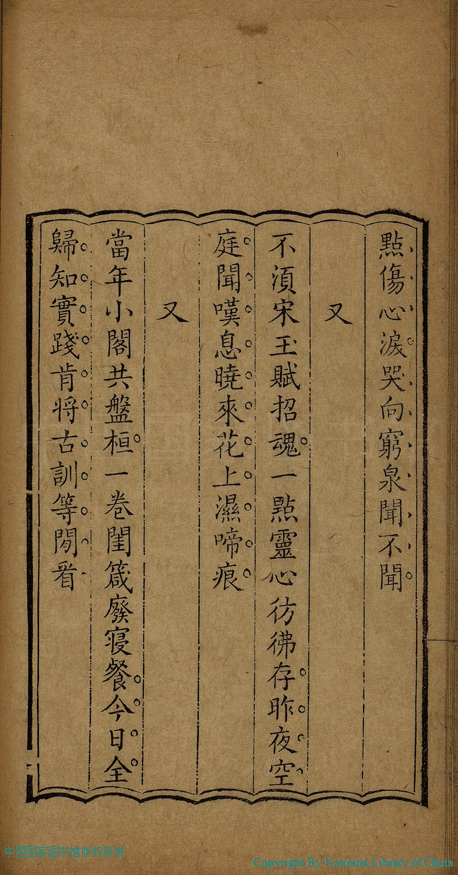 點傷心淚哭向窮泉聞不聞
又
不須宋玉賦招魂一點靈心彷彿存昨夜空
庭聞嘆息曉來花上濕啼痕
又
當年小閣共盤桓一卷閨箴廢寢餐今日全
歸知實踐肯將古訓等閒看
Copyright By National Library of China